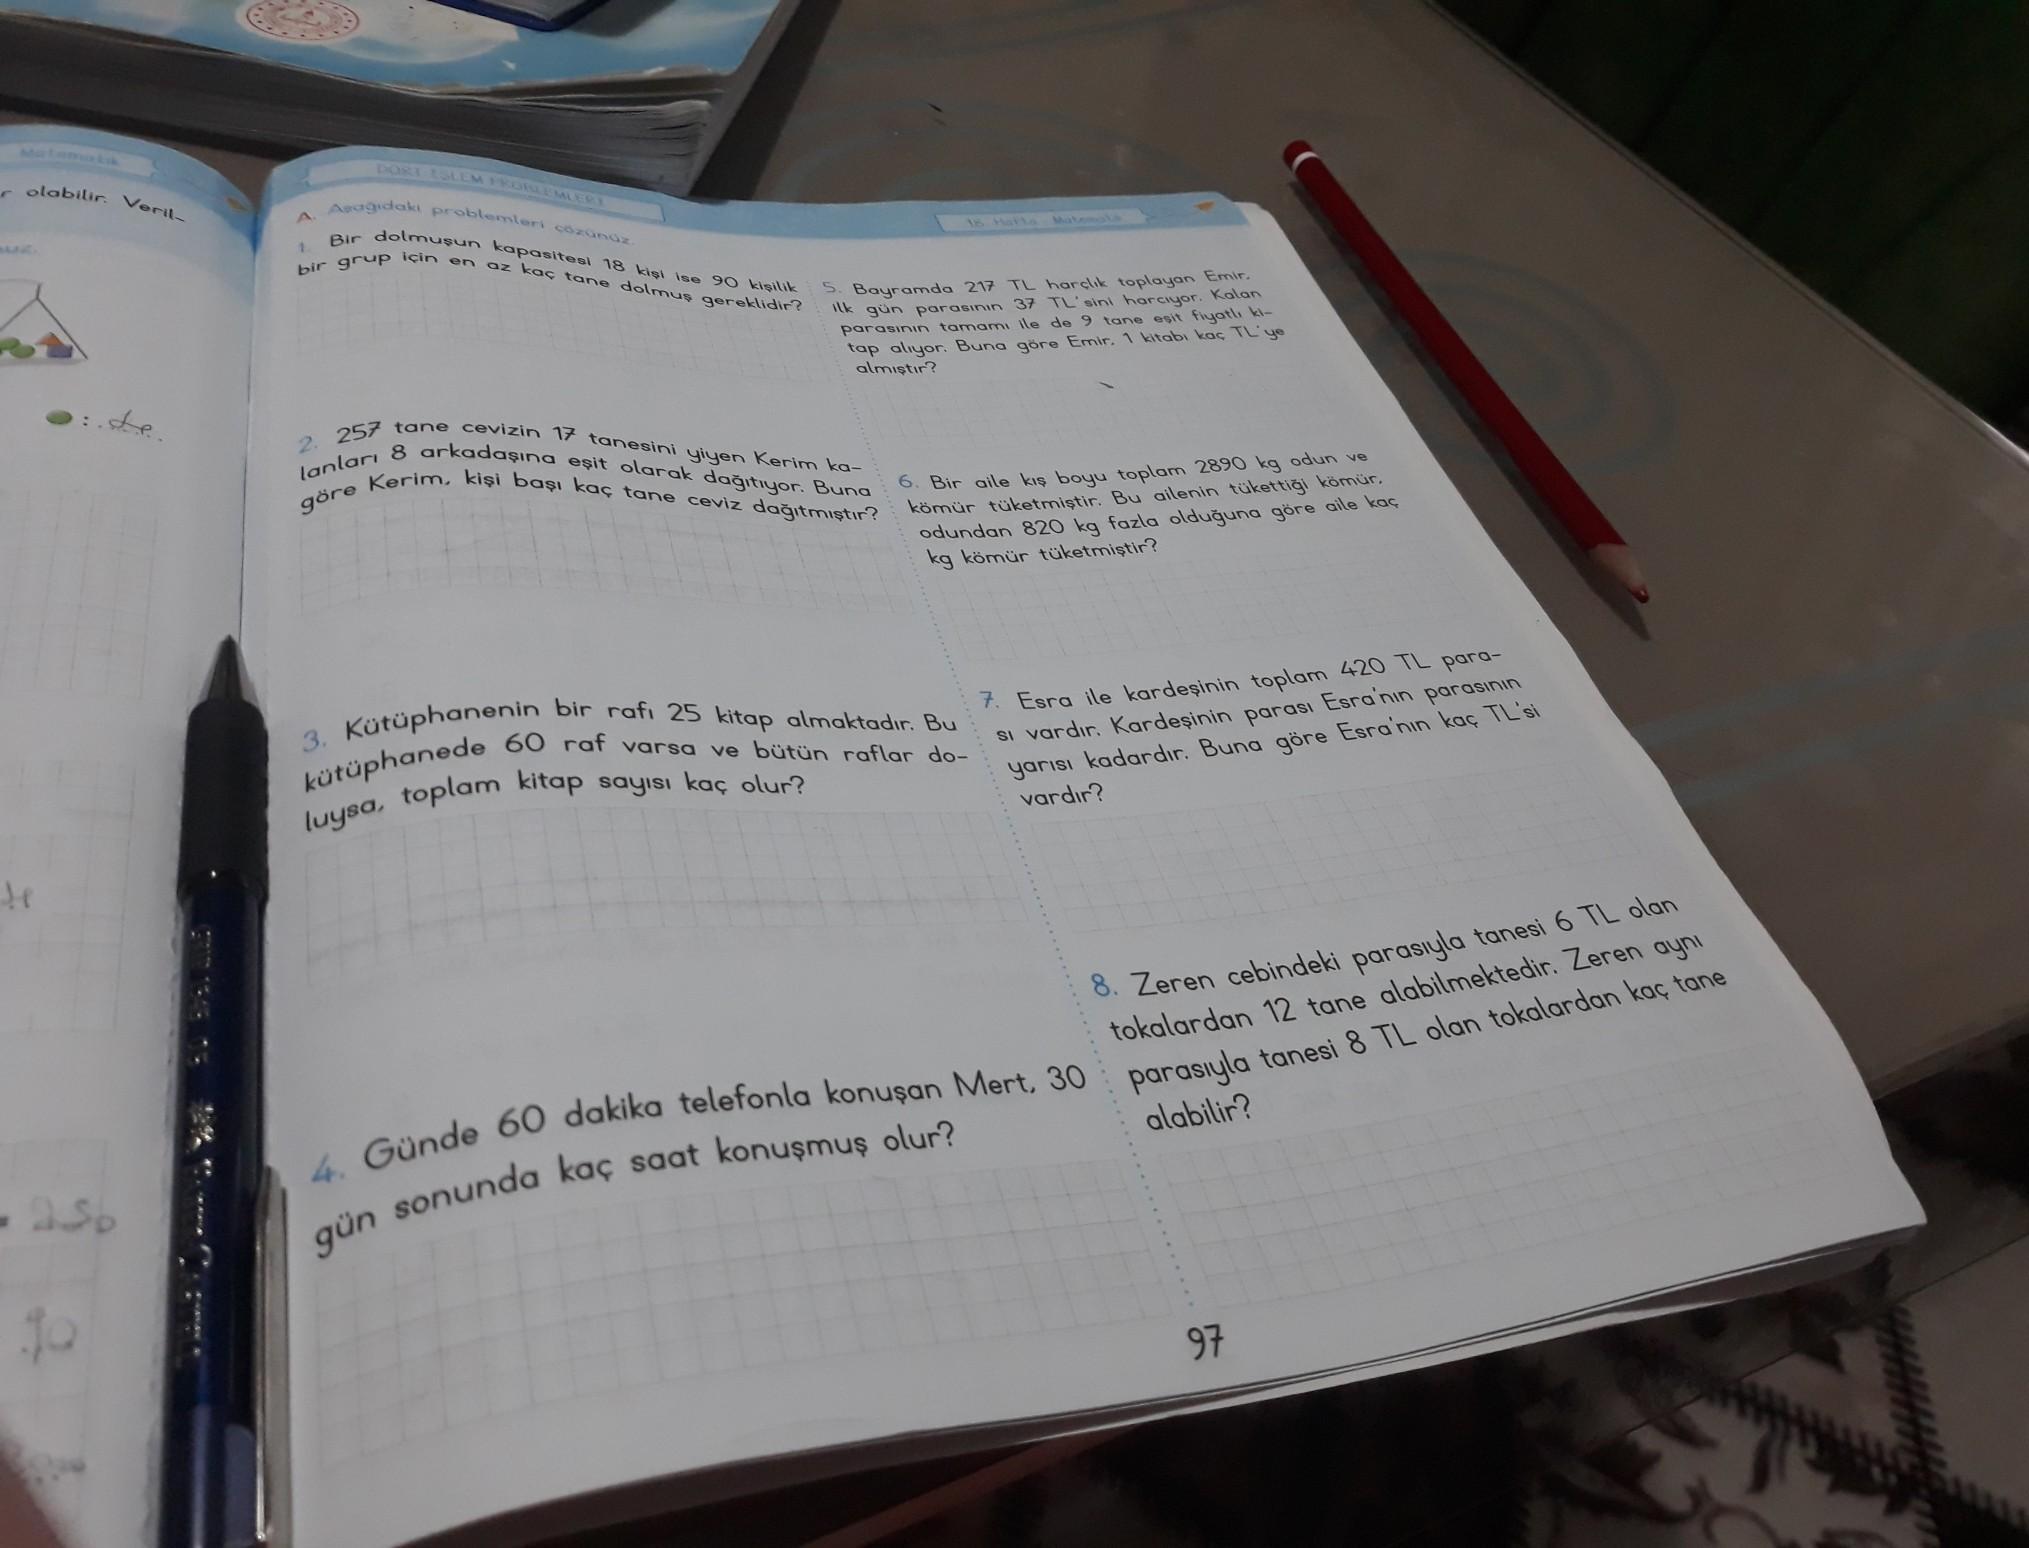 Matematik
r olabilir. Veril-
: .de.
de
250
90
DÖRT İŞLEM PROBLEMLERİ
18. Hafta - Matematik
A. Aşağıdaki problemleri çözünüz.
1. Bir dolmuşun kapasitesi 18 kişi ise 90 kişilik
bir grup için en az kaç tane dolmuş gereklidir?
2. 257 tane cevizin 17 tanesini yiyen Kerim ka-
lanları 8 arkadaşına eşit olarak dağıtıyor. Buna
göre Kerim, kişi başı kaç tane ceviz dağıtmıştır?
3. Kütüphanenin bir rafı 25 kitap almaktadır. Bu
kütüphanede 60 raf varsa ve bütün raflar do-
luysa, toplam kitap sayısı kaç olur?
4. Günde 60 dakika telefonla konuşan Mert, 30
gün sonunda kaç saat konuşmuş olur?
5. Bayramda 217 TL harçlık toplayan Emir,
ilk gün parasının 37 TL'sini harcıyor. Kalan
parasının tamamı ile de 9 tane eşit fiyatlı ki-
tap alıyor. Buna göre Emir, 1 kitabı kaç TL'ye
almıştır?
6. Bir aile kış boyu toplam 2890 kg odun ve
kömür tüketmiştir. Bu ailenin tükettiği kömür,
odundan 820 kg fazla olduğuna göre aile kaç
kg kömür tüketmiştir?
7. Esra ile kardeşinin toplam 420 TL para-
sı vardır. Kardeşinin parası Esra'nın parasının
yarısı kadardır. Buna göre Esra'nın kaç TL'si
vardır?
8. Zeren cebindeki parasıyla tanesi 6 TL olan
tokalardan 12 tane alabilmektedir. Zeren aynı
parasıyla tanesi 8 TL olan tokalardan kaç tane
alabilir?
97